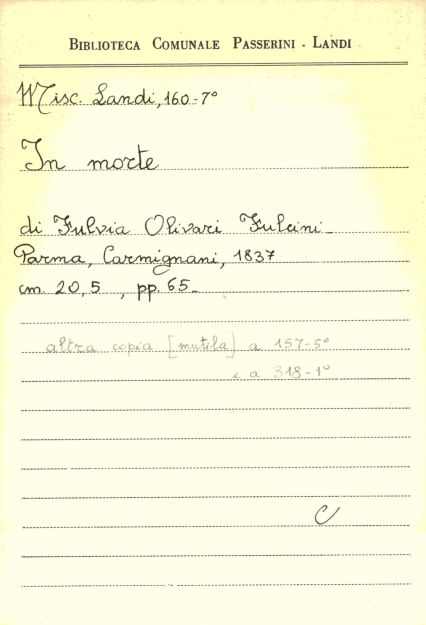 BIBLIOTECA COMUNALE PASSERINI - LANDI
Misc. Landi, 160-7°
In morte
di Fulvia Olivari Fulcini_
Parma, Carmignani, 1837
cm. 20,5 , pp. 65_
altra copia [mutila] a 157-5°
e a 318-1°
C